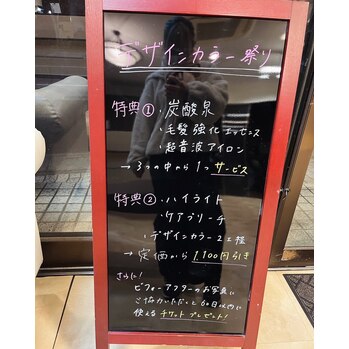 デザインカラー祭り
特典①・炭酸泉
・毛髪強化エッセンス
・超音波アイロン
→3つの中から1つサービス
特典②・ハイライト
・ケアブリーチ
・デザインカラー2工程
→定価から1100円引き
さらに!
ビフォーアフターのお写真に
ご協力いただくと60日以内に
使えるチケットプレゼント!